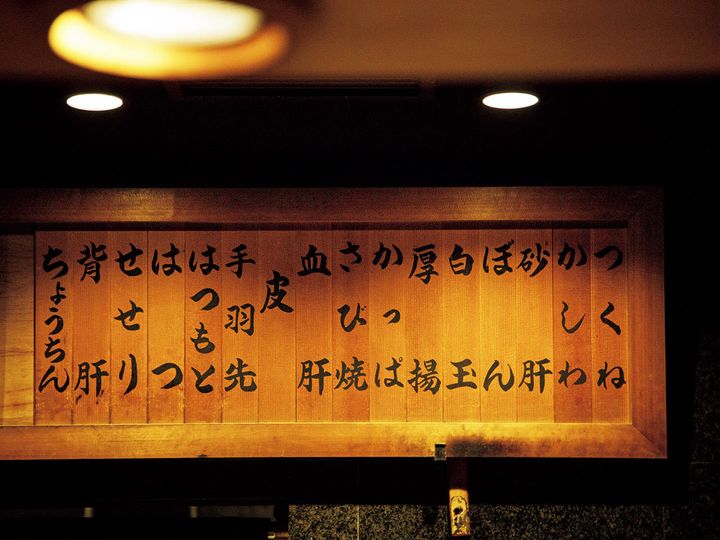 つくね
かしわ
砂肝
ぼん
白玉
厚揚
かっぱ
さび焼
血肝
皮
手羽先
はつもと
はつ
せせり
背肝
ちょうちん